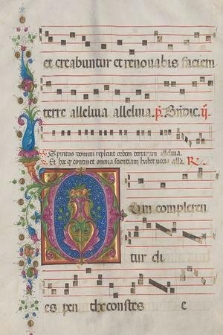 et creabuntur et renovabis faciem
terre alleluia alleluia. p̄. Bn̄dic.
Spiritus domini replevit orbem terrarum alleluia
Et hoc quod continet omnia scientiam habet vocis alla. R.
Dum compleren
tur di
es pen thecostes e